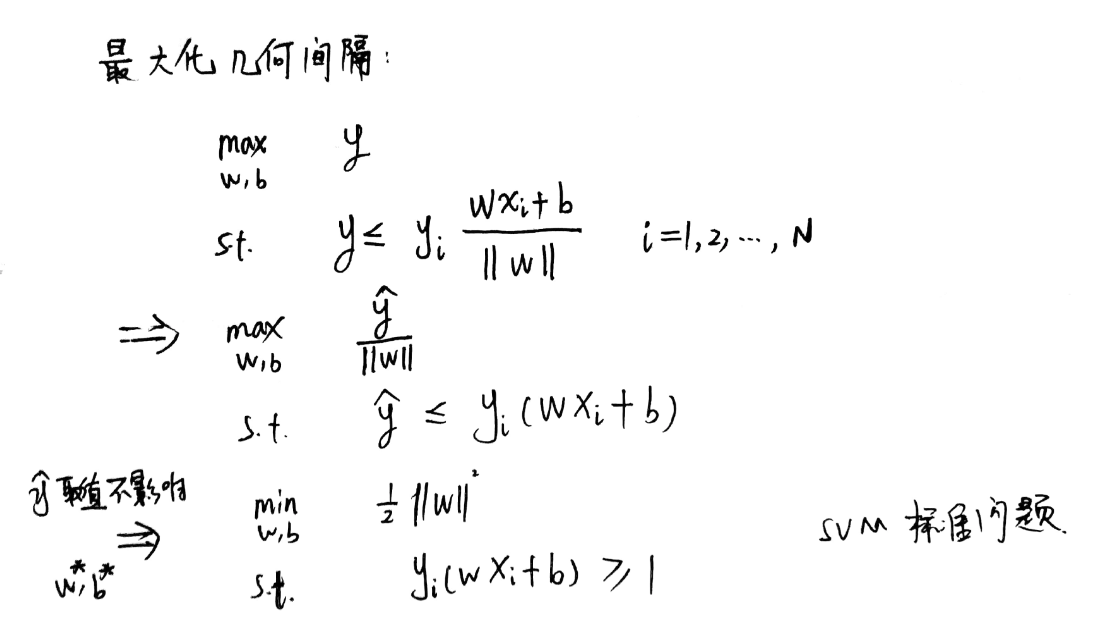 最大化几何间隔:
max w,b y
s.t. y ≤ y_i (wx_i+b)/||w|| i=1,2,…,N
⇒ max w,b ŷ/||w||
s.t. ŷ ≤ y_i(wx_i+b)
ŷ取值不影响 w*,b* ⇒ min w,b ½||w||²
s.t. y_i(wx_i+b) ≥ 1
SVM 标准问题.